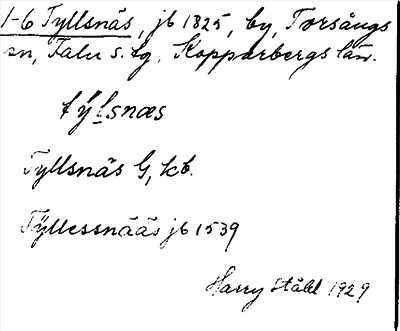 1-6 Tyllsnäs, jb 1825, by, Torsångs
sn, Falu s. tg, Kopparbergs län.
tỳlsnæs
Tyllsnäs G, kb.
Tÿllessnääs jb 1539
Harry Ståhl 1929